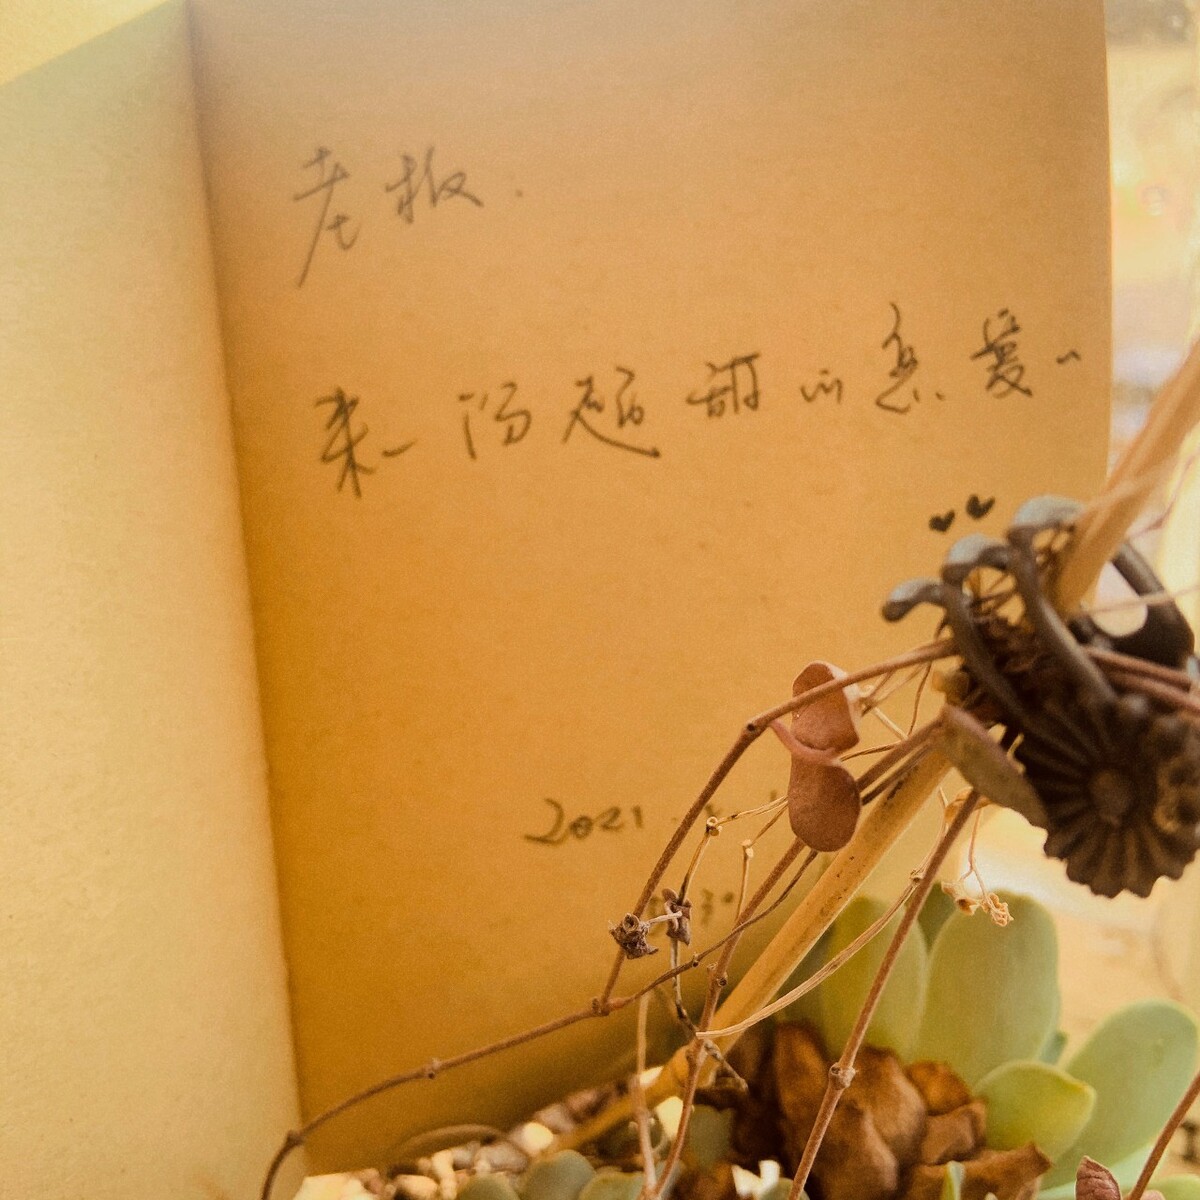 老板.
来一份超甜的恋爱~
2021